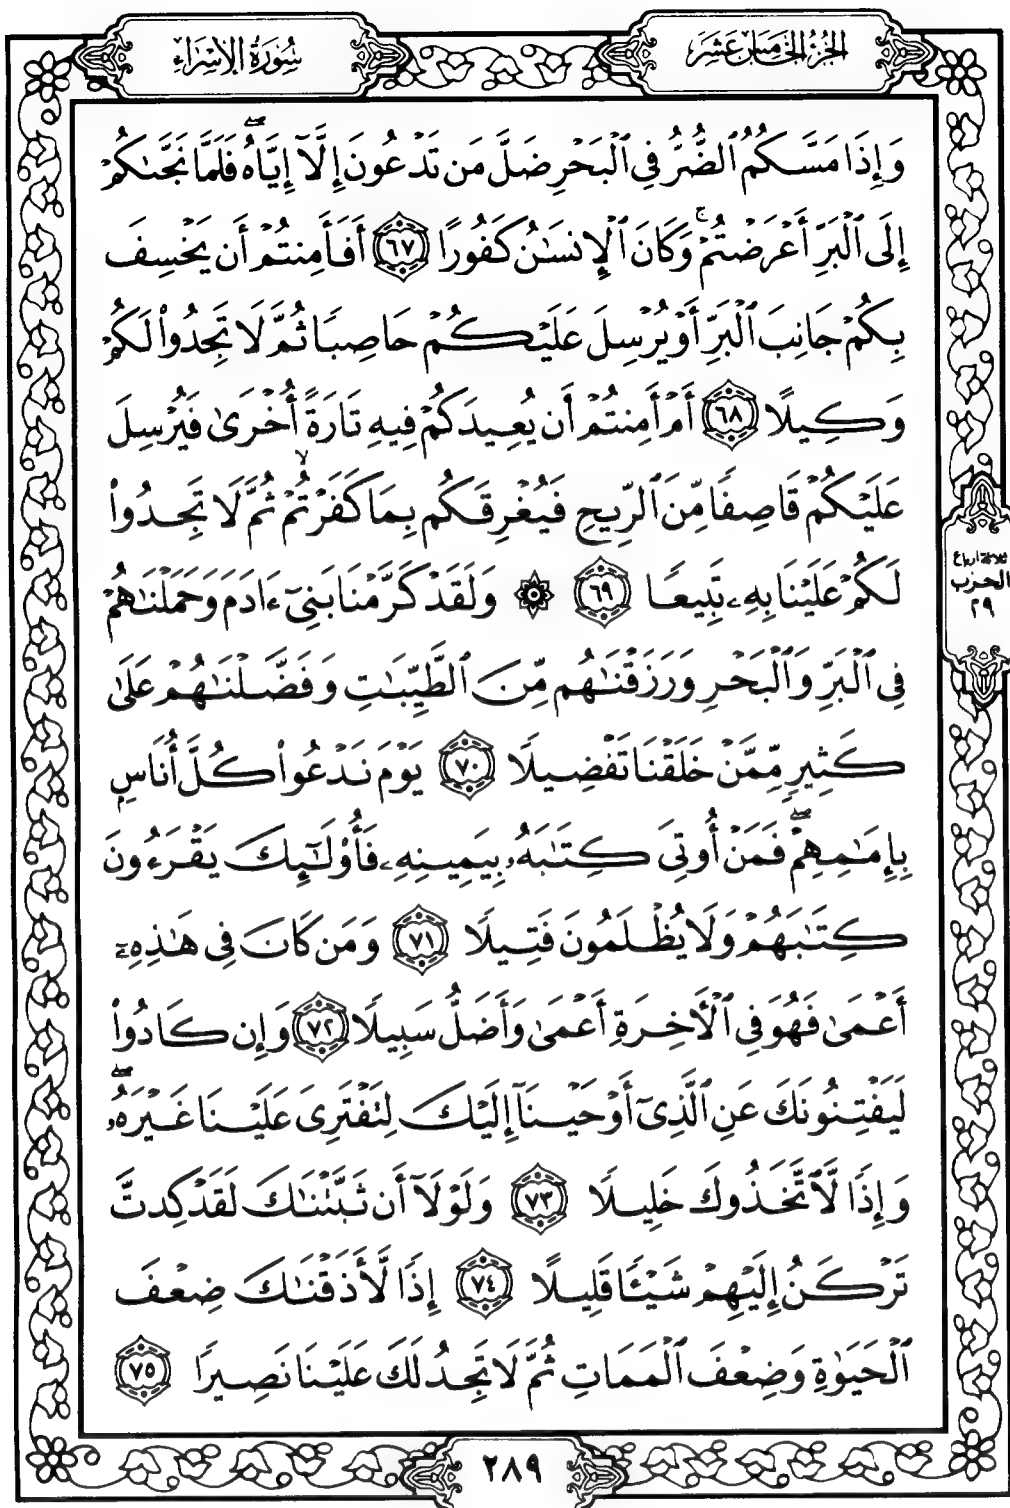 الجزء الخامس عشر
سورة الإسراء
وَإِذَا مَسَّكُمُ ٱلضُّرُّ فِى ٱلْبَحْرِ ضَلَّ مَن تَدْعُونَ إِلَّآ إِيَّاهُ ۖ فَلَمَّا نَجَّىٰكُمْ
إِلَى ٱلْبَرِّ أَعْرَضْتُمْ ۚ وَكَانَ ٱلْإِنسَٰنُ كَفُورًا ٦٧ أَفَأَمِنتُمْ أَن يَخْسِفَ
بِكُمْ جَانِبَ ٱلْبَرِّ أَوْ يُرْسِلَ عَلَيْكُمْ حَاصِبًا ثُمَّ لَا تَجِدُوا۟ لَكُمْ
وَكِيلًا ٦٨ أَمْ أَمِنتُمْ أَن يُعِيدَكُمْ فِيهِ تَارَةً أُخْرَىٰ فَيُرْسِلَ
عَلَيْكُمْ قَاصِفًا مِّنَ ٱلرِّيحِ فَيُغْرِقَكُم بِمَا كَفَرْتُمْ ۙ ثُمَّ لَا تَجِدُوا۟
لَكُمْ عَلَيْنَا بِهِۦ تَبِيعًا ٦٩ ۞ وَلَقَدْ كَرَّمْنَا بَنِىٓ ءَادَمَ وَحَمَلْنَٰهُمْ
فِى ٱلْبَرِّ وَٱلْبَحْرِ وَرَزَقْنَٰهُم مِّنَ ٱلطَّيِّبَٰتِ وَفَضَّلْنَٰهُمْ عَلَىٰ
كَثِيرٍ مِّمَّنْ خَلَقْنَا تَفْضِيلًا ٧٠ يَوْمَ نَدْعُوا۟ كُلَّ أُنَاسٍۭ
بِإِمَٰمِهِمْ ۖ فَمَنْ أُوتِىَ كِتَٰبَهُۥ بِيَمِينِهِۦ فَأُو۟لَٰٓئِكَ يَقْرَءُونَ
كِتَٰبَهُمْ وَلَا يُظْلَمُونَ فَتِيلًا ٧١ وَمَن كَانَ فِى هَٰذِهِۦٓ
أَعْمَىٰ فَهُوَ فِى ٱلْءَاخِرَةِ أَعْمَىٰ وَأَضَلُّ سَبِيلًا ٧٢ وَإِن كَادُوا۟
لَيَفْتِنُونَكَ عَنِ ٱلَّذِىٓ أَوْحَيْنَآ إِلَيْكَ لِتَفْتَرِىَ عَلَيْنَا غَيْرَهُۥ ۖ
وَإِذًا لَّٱتَّخَذُوكَ خَلِيلًا ٧٣ وَلَوْلَآ أَن ثَبَّتْنَٰكَ لَقَدْ كِدتَّ
تَرْكَنُ إِلَيْهِمْ شَيْـًٔا قَلِيلًا ٧٤ إِذًا لَّأَذَقْنَٰكَ ضِعْفَ
ٱلْحَيَوٰةِ وَضِعْفَ ٱلْمَمَاتِ ثُمَّ لَا تَجِدُ لَكَ عَلَيْنَا نَصِيرًا ٧٥
ثلاثة أرباع
الحزب
٢٩
٢٨٩